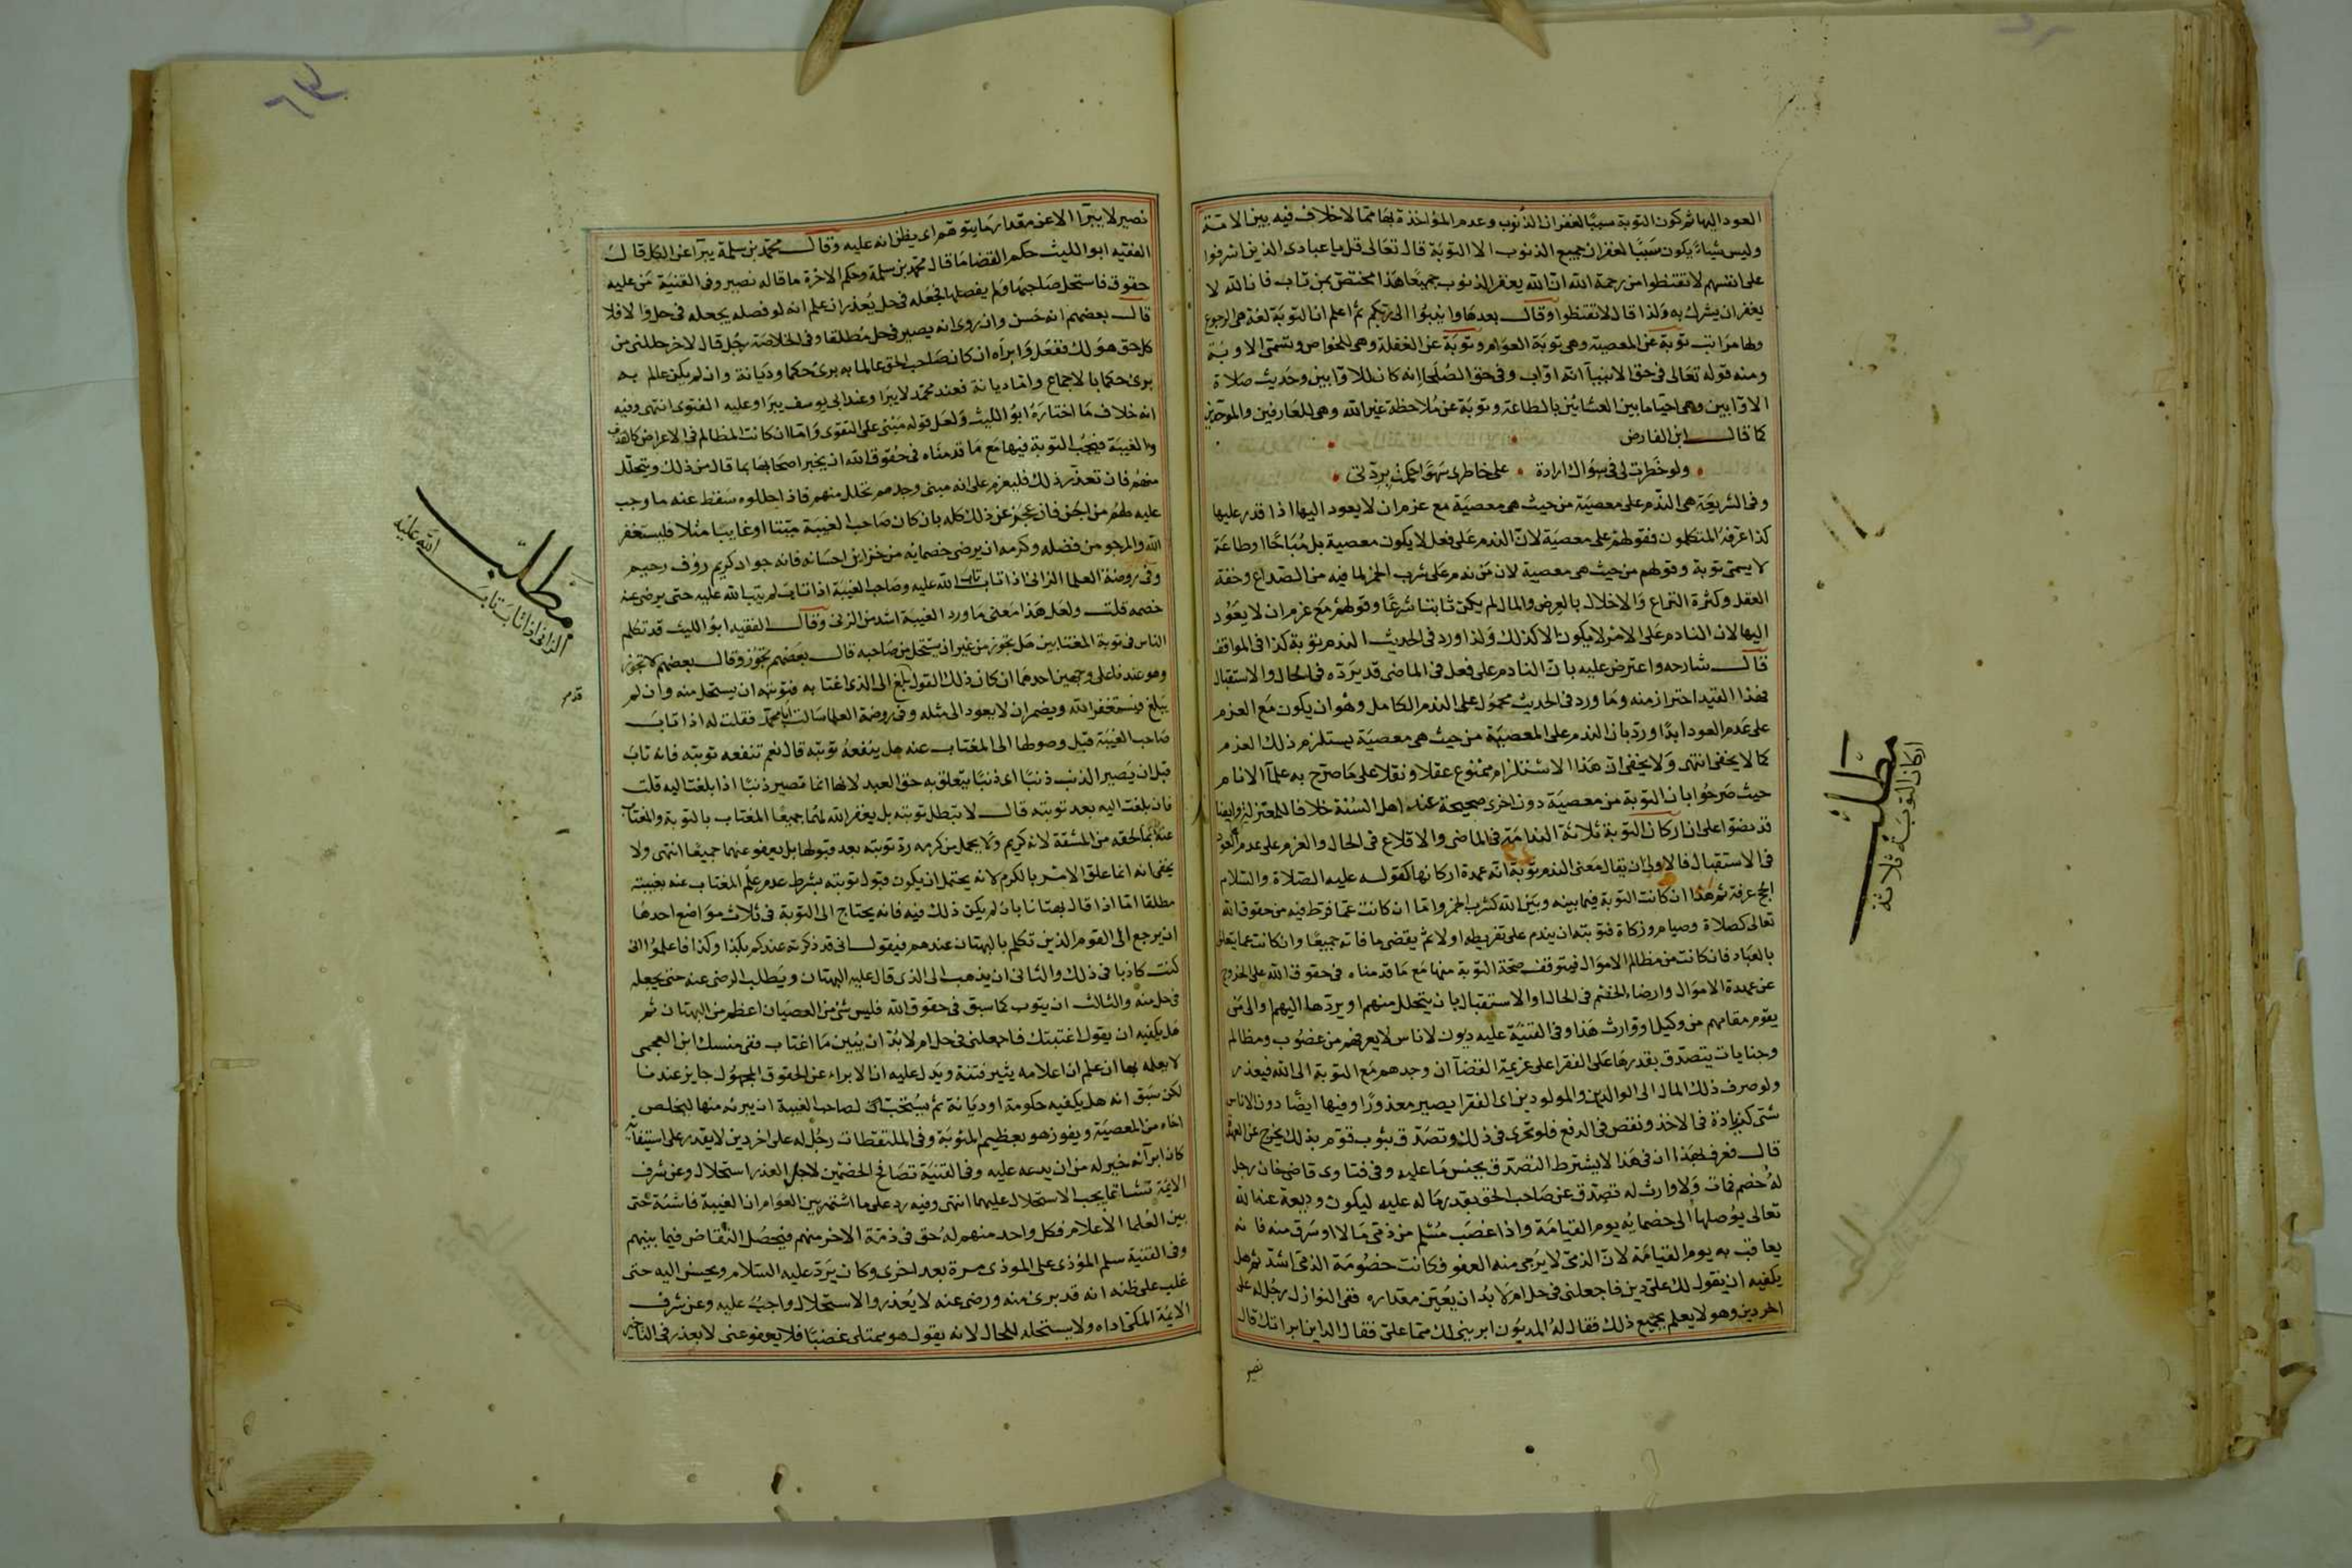 العود اليها ثم كون التوبة سببا لغفران الذنوب وعدم المؤاخذة بها مما لا خلاف فيه بين الامة
وليس شياء يكون سببا لغفران جميع الذنوب الا التوبة قال تعالى قل يا عبادى الذين اسرفوا
على انفسهم لا تقنطوا من رحمة الله ان الله يغفر الذنوب جميعا هذا مختص بمن تاب فان الله لا
يغفر ان يشرك به ولذا قال لا تقنطوا وقال بعدها وانيبوا الى ربكم ثم اعلم ان التوبة لغة هى الرجوع
ولها مراتب توبة عن المعصية وهى توبة العوام وتوبة عن الغفلة وهى للخواص وتسمى الاوبة
ومنه قوله تعالى فى حق الانبيآ انه اواب وفى حق الصلحا انه كان للاوابين وحديث صلاة
الاوابين وهى احيا ما بين العشائين بالطاعة وتوبة عن ملاحظة غير الله وهى للعارفين والموحدين
كما قال ابن الفارض
ولو خطرت لى فى سواك ارادة على خاطرى سهوا حكمت بردتى
وفى الشريعة هى الندم على معصية من حيث هى معصية مع عزم ان لا يعود اليها اذا قدر عليها
كذا عرفه المتكلمون فقولهم على معصية لان الندم على فعل لا يكون معصية بل مباحا او طاعة
لا يسمى توبة وقولهم من حيث هى معصية لان من ندم على شرب الخمر لما فيه من الصداع وخفة
العقل وكثرة النزاع والاخلال بالعرض والمال لم يكن تائبا شرعا وقولهم مع عزم ان لا يعود
اليها لان النادم على الامر لا يكون الا كذلك ولذا ورد فى الحديث الندم توبة كذا فى المواقف
قال شارحه واعترض عليه بان النادم على فعل فى الماضى قد يرده فى الحال والاستقبال
فهذا القيد احتراز منه وما ورد فى الحديث محمول على الندم الكامل وهو ان يكون مع العزم
على عدم العود ابدا ورد بان الندم على المعصية من حيث هى معصية يستلزم ذلك العزم
كما لا يخفى انتهى ولا يخفى ان هذا الاستلزام ممنوع عقلا ونقلا على ما صرح به علمآ الانام
حيث صرحوا بان التوبة من معصية دون اخرى صحيحة عند اهل السنة خلافا للمعتزلة وايضا
قد نصوا على ان اركان التوبة ثلاثة الندامة فى الماضى والاقلاع فى الحال والعزم على عدم العود
فى الاستقبال فالاولى ان يقال معنى الندم توبة انه عمدة اركانها كقوله عليه الصلاة والسلام
الحج عرفة ثم هذا ان كانت التوبة فيما بينه وبين الله كشرب الخمر واما ان كانت عما فرط فيه من حقوق الله
تعالى كصلاة وصيام وزكاة فتوبته ان يندم على تفريطه اولا ثم يقضى ما فاته جميعا وان كانت عما يتعلق
بالعباد فان كانت من مظالم الاموال فيتوقف صحة التوبة منها مع ما قدمناه فى حقوق الله على الخروج
عن عهدة الاموال وارضاء الخصم فى الحال او الاستقبال بان يتحلل منهم او يردها اليهم او الى من
يقوم مقامهم من وكيل او وارث هذا وفى القنية عليه ديون لاناس لا يعرفهم من غصوب ومظالم
وجنايات يتصدق بقدرها على الفقرا على عزيمة القضآ ان وجدهم مع التوبة الى الله فيعذر
ولو صرف ذلك المال الى الوالدين والمولودين اى الفقرا يصير معذورا وفيها ايضا ديون الاناس
شتى كزيادة فى الاخذ ونقص فى الدفع فلو تحرى فى ذلك وتصدق بثوب قوم بذلك يخرج عن العهدة
قال فعرف بهذا ان فى هذا لا يشترط التصدق بجنس ما عليه وفى فتاوى قاضيخان رجل
له خصم فمات ولا وارث له تصدق عن صاحب الحق بقدر ما له عليه ليكون وديعة عند الله
تعالى يوصلها الى خصمائه يوم القيامة واذا غصب مسلم من ذمى مالا او سرق منه فانه
يعاقب به يوم القيامة لان الذمى لا يرجى منه العفو فكانت خصومة الذمى اشد ثم هل
يكفيه ان يقول لك على دين فاجعلنى فى حل ام لا بد ان يعين مقداره ففى النوازل رجل له على
اخر دين وهو لا يعلم بجميع ذلك فقال له المديون ابرينى لك مما على فقال الداين ابراتك قال
نصير
مطلب
اركان التوبة ثلاثة
نصير لا يبرا الا عن مقدار ما يتوهم اى يظن انه عليه وقال محمد بن سلمة يبرا عن الكل قال
الفقيه ابو الليث حكم القضا ما قال محمد بن سلمة وحكم الاخرة ما قاله نصير وفى القنية من عليه
حقوق فاستحل صاحبها ولم يفصلها فجعله فى حل يعذر ان علم انه لو فصله يجعله فى حل والا فلا
قال بعضهم انه حسن وان روى انه يصير فى حل مطلقا وفى الخلاصة رجل قال لاخر حللنى من
كل حق هو لك ففعل وابراه ان كان صاحب الحق عالما به برئ حكما وديانة وان لم يكن عالم به
برئ حكما بالاجماع واما ديانة فعند محمد لا يبرا وعند ابى يوسف يبرا وعليه الفتوى انتهى وفيه
انه خلاف ما اختاره ابو الليث ولعل قوله مبنى على التقوى واما ان كانت المظالم فى الاعراض كالقذف
والغيبة فيجب التوبة فيها مع ما قدمناه فى حقوق الله ان يخبر اصحابها بما قال من ذلك ويتحلل
منهم فان تعذر ذلك فليعزم على انه متى وجدهم تحلل منهم فاذا حللوه سقط عنه ما وجب
عليه لهم من الحق فان عجز عن ذلك كله بان كان صاحب الغيبة ميتا او غايبا مثلا فليستغفر
الله والمرجو من فضله وكرمه ان يرضى خصمايه من خزاين احسانه فانه جواد كريم رؤف رحيم
وفى روضة العلما الزانى اذا تاب تاب الله عليه وصاحب الغيبة اذا تاب لم يتب الله عليه حتى يرضى عنه
خصمه قلت ولعل هذا معنى ما ورد الغيبة اشد من الزنى وقال الفقيه ابو الليث قد تكلم
الناس فى توبة المغتابين هل تجوز من غير ان يستحل من صاحبه قال بعضهم تجوز وقال بعضهم لا تجوز
وهو عندنا على وجهين احدهما ان كان ذلك القول بلغ الى الذى اغتابه فتوبته ان يستحل منه وان لم
يبلغ فيستغفر الله ويضمر ان لا يعود الى مثله وفى روضة العلما سالت ابا محمد فقلت له اذا تاب
صاحب الغيبة قبل وصولها الى المغتاب عنه هل ينفعه توبته قال نعم تنفعه توبته فانه تاب
قبل ان يصير الذنب ذنبا اى ذنبا يتعلق به حق العبد لانها انما تصير ذنبا اذا بلغت اليه قلت
فان بلغت اليه بعد توبته قال لا تبطل توبته بل يغفر الله لهما جميعا المغتاب بالتوبة والمغتاب
عنه بما لحقه من المشقة لانه كريم ولا يحمل من كرمه رد توبته بعد قبولها بل يعفو عنهما جميعا انتهى ولا
يخفى انه انما علق الامر بالكرم لانه يحتمل ان يكون قبول توبته بشرط عدم علم المغتاب عنه بغيبته
مطلقا اما اذا قال بهتانا بان لم يكن ذلك فيه فانه يحتاج الى التوبة فى ثلاث مواضع احدها
ان يرجع الى القوم الذين تكلم بالبهتان عندهم فيقول انى قد ذكرته عندكم بكذا وكذا فاعلموا انى
كنت كاذبا فى ذلك والثانى ان يذهب الى الذى قال عليه البهتان ويطلب الرضى عنه حتى يجعله
فى حل منه والثالث ان يتوب كما سبق فى حقوق الله فليس شئ من العصيان اعظم من البهتان ثم
هل يكفيه ان يقول اغتبتك فاجعلنى فى حل ام لا بد ان يبين ما اغتاب ففى منسك ابن العجمى
لا يعلمه بها ان علم ان اعلامه يثير فتنة ويدل عليه ان الابراء عن الحقوق المجهول جايز عندنا
لكن سبق انه هل يكفيه حكومة او ديانة ثم يستحب لصاحب الغيبة ان يبرئه منها ليخلص
اخاه من المعصية ويفوز هو بعظيم المثوبة وفى الملتقطات رجل له على اخر دين لا يقدر على استيفائه
كان ابرآئه خير له من ان يدعه عليه وفى القنية تصافح الخصمين لاجل العذر استحلال وعن شرف
الايمة تشاتما يجب الاستحلال عليهما انتهى وفيه رد على ما اشتهر بين العوام ان الغيبة فاشية حتى
بين العلما الاعلام فكل واحد منهم له حق فى ذمة الاخر منهم فيحصل التقاص فيما بينهم
وفى القنية سلم المؤذى على الموذى مرة بعد اخرى وكان يرد عليه السلام ويحسن اليه حتى
غلب على ظنه انه قد برئ منه ورضى عنه لا يعذر والاستحلال واجب عليه وعن شرف
الايمة المكى اذاه ولا يستحله للحال لانه يقول هو ممتلى غضبا فلا يعفو عنى لا يعذر فى التاخير
مطلب
الزانى اذا تاب تاب
الله عليه